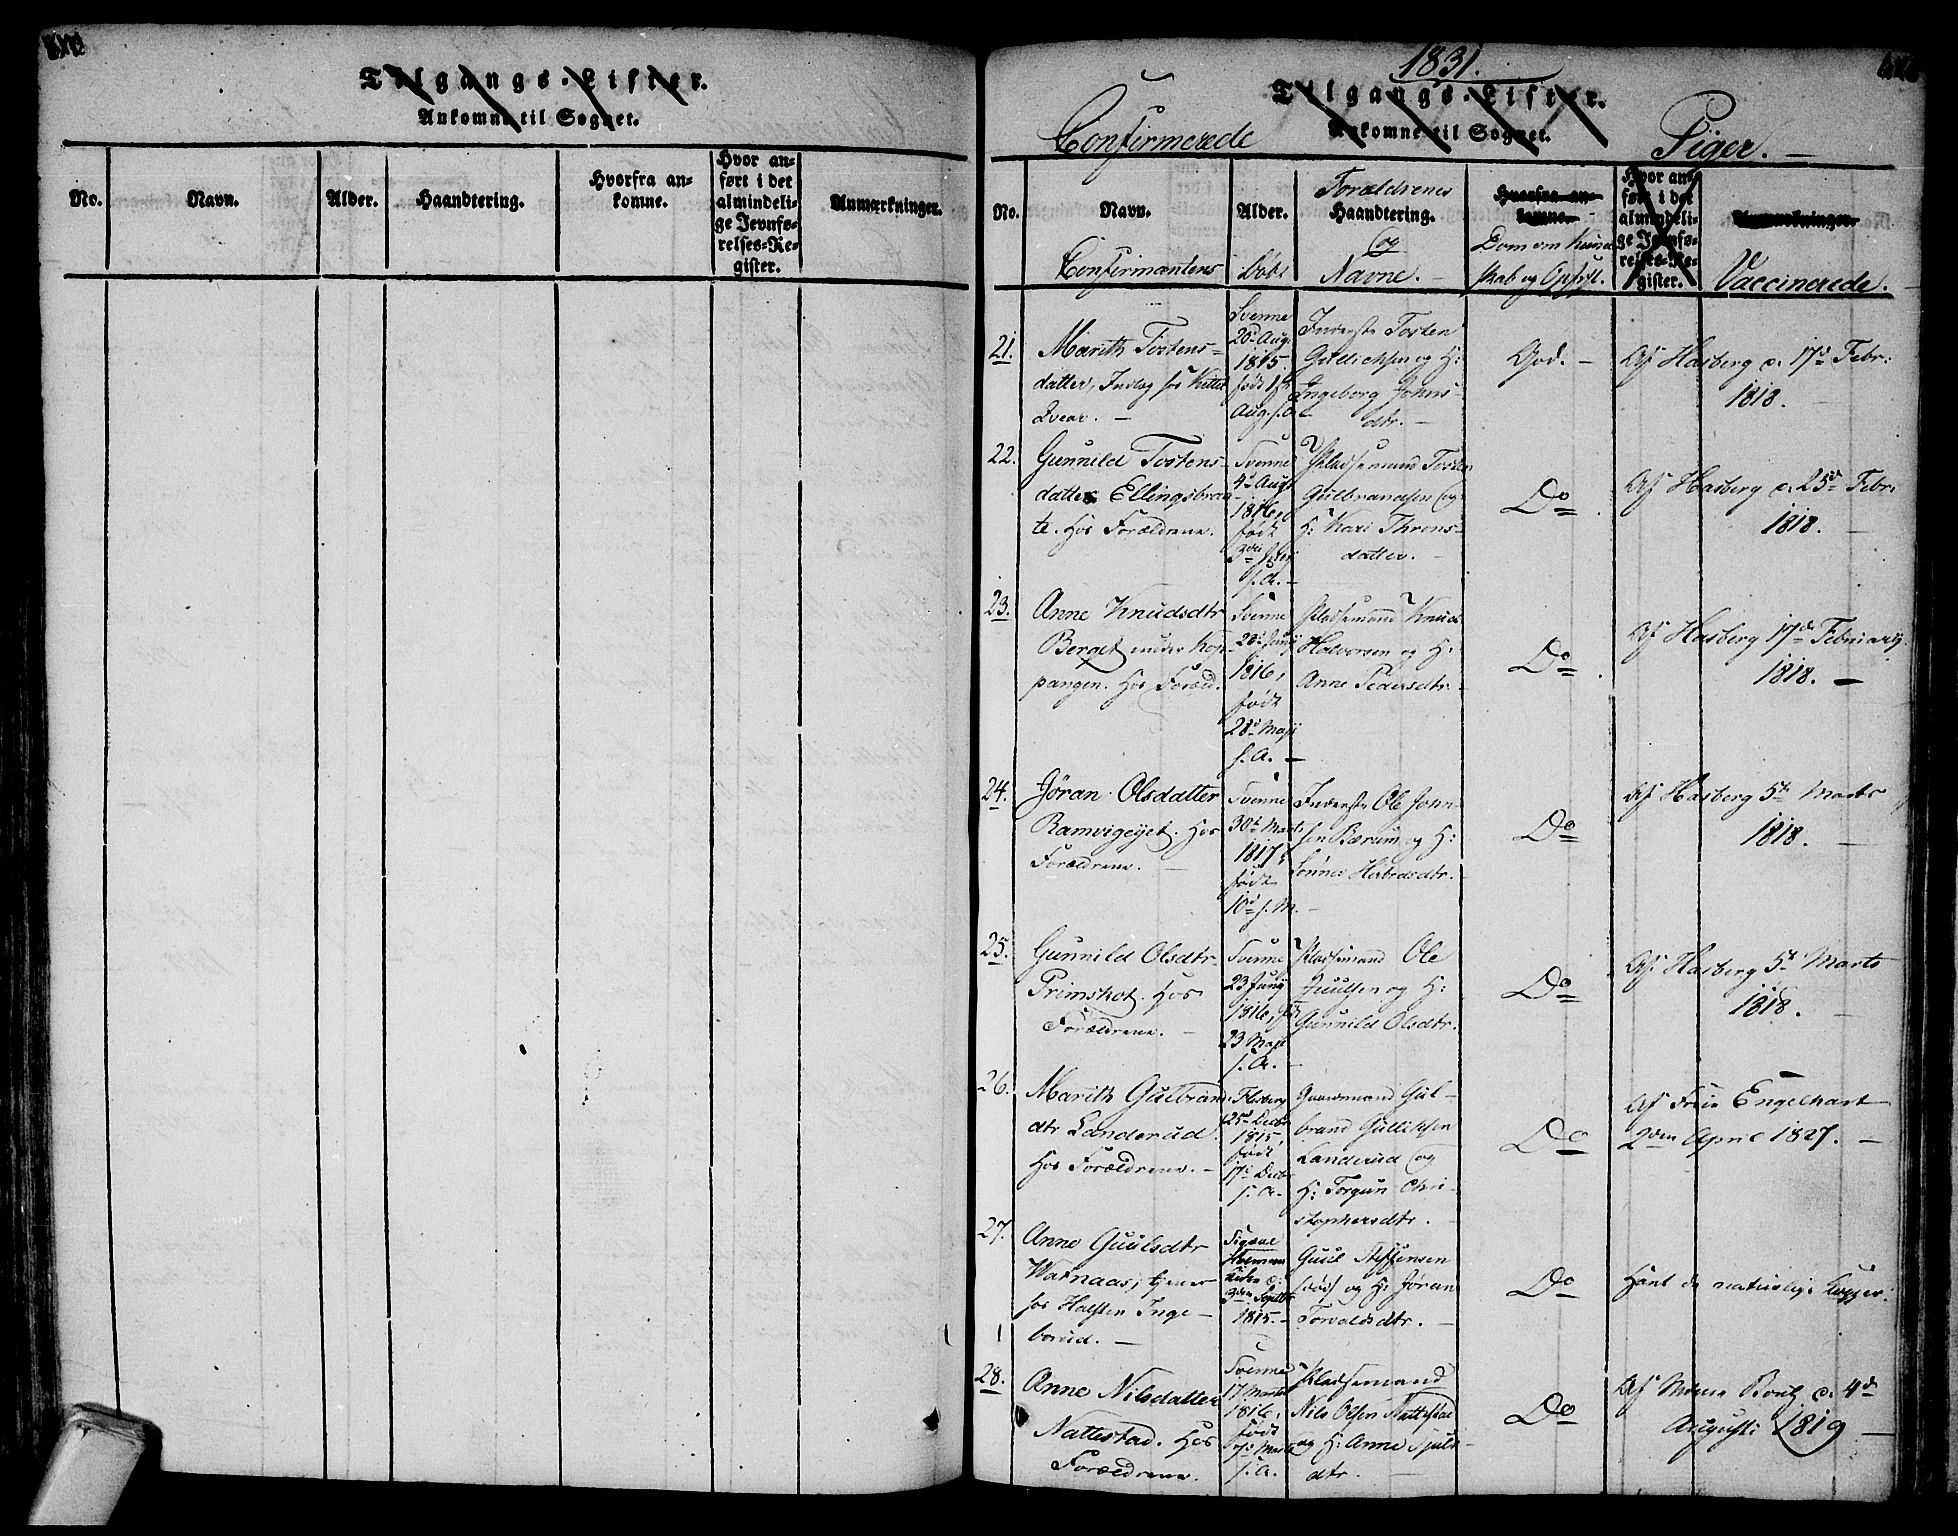 Tilgangs-Lister.
Ankomne til Sognet.
No.
Navn.
Alder.
Haandtering.
Hvorfra an-
komne.
Hvor an-
ført i det
almindeli-
ge Jevnfø-
relses-Re-
gister.
Anmærkninger.
1831.
Tilgangs-Lister.
Ankomne til Sognet.
Confirmerede Piger. —
No.
Navn.
Confirmantens
Alder.
Døbt
Forældrenes
Haandtering.
og
Navne.
Hvorfra an-
komne.
Dom om Kund
skab og Opførs.
Hvor an-
ført i det
almindeli-
ge Jevnfø-
relses-Re-
gister.
Anmærkninger.
Vaccinerede.
21.
Marith Tostens-
datter,
Svenne
20d Aug.
1815.
født
Aug. s. A.
Inderste Tosten
Gullichsen og H:
Ingeborg Johns-
dtr. —
God. —
Af Hasberg d. 17d Febr:
1818. —
22.
Gunnild Tostens-
datter Ellingsbraa-
te. Hos Forældrene.
Svenne
4d Aug
1816,
født
s. A. —
Pladsemand Tosten
Gulbrandsen og
H: Kari Throns-
datter. —
Do
Af Hasberg d. 25d Febr:
1818. —
23.
Anne Knudsdtr
Berget under Kop-
pangen. Hos Foræld.
Svenne
23d Junij
1816,
født
28d Maji
s. A. —
Pladsemand Knud
Halvorsen og H:
Anne Pedersdtr.
Do
Af Hasberg 17de Februarij
1818. —
24.
Jøran Olsdatter
Ramvigeyet. Hos
Forældrene. —
Svenne
30d Marts
1817,
født
10d s. M. —
Inderste Ole John-
sen Bærum og H:
Lønnes Herbrdsdtr.
Do
Af Hasberg 5d Marts
1818. —
25.
Gunnild Olsdtr.
Primskot. Hos
Forældrene. —
Svenne
23 Junij
1816, fød
23 Maji
s. A. —
Pladsemand Ole
Juulsen og H:
Gunnild Olsdtr.
Do
Af Hasberg 5d Marts
1818. —
26.
Marith Gulbrands
dtr Landerud.
Hos Forældrene. —
Flesberg
25d Decbr
1815,
født
17d Decbr
s. A.
Gaardmand Gul-
brand Gullichsen
Landerud og
H: Torgun Chri-
stophersdtr. —
Do
Af Frue Engelhart
2den April 1827. —
27.
Anne Guulsdtr
Warnaas, tjener
hos Halsten Inge-
borud. —
Sigdal
1815. —
Guul Steffensen
død og H: Jøran
Torvaldsdtr. —
Do
Havt de naturlige Kopper.
28.
Anne Nilsdatter
Nattestad. Hos
Forældrene.
Svenne
17 Marts
1816,
født
s. A.
Pladsemand
Nils Olsen Nattestad
og H: Anne Sjuls-
dtr. —
Do
d. 4de
Augusti 1819 —